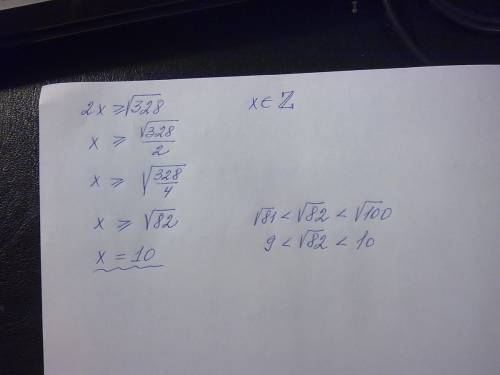 2x ⩾ √328
x ∈ ℤ
x ⩾ √328/2
x ⩾ √(328/4)
x ⩾ √82
√81 < √82 < √100
x = 10
9 < √82 < 10